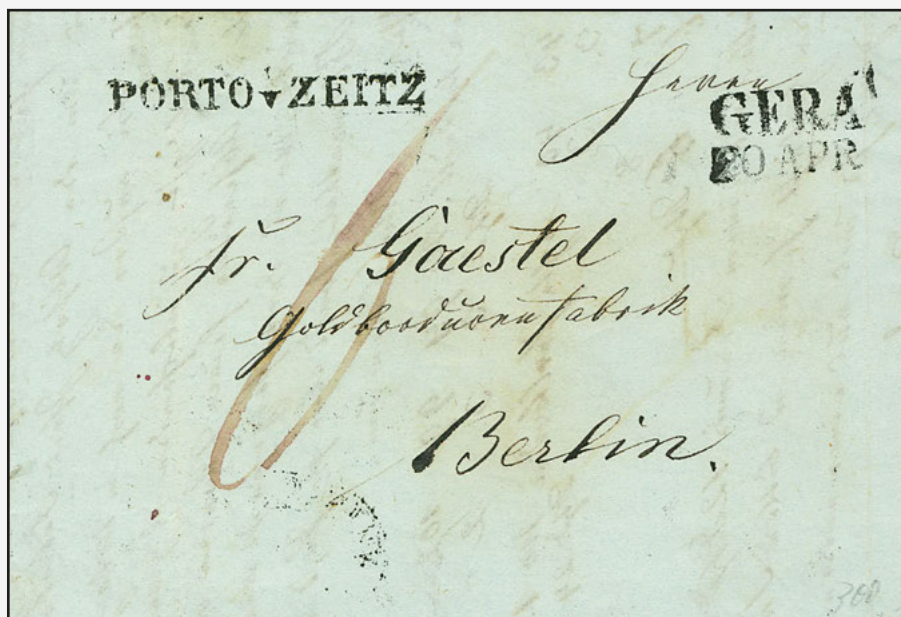 PORTO▾ZEITZ
Herrn
GERA
20 APR
Fr. Gaestel
Goldborduren fabrik
Berlin.